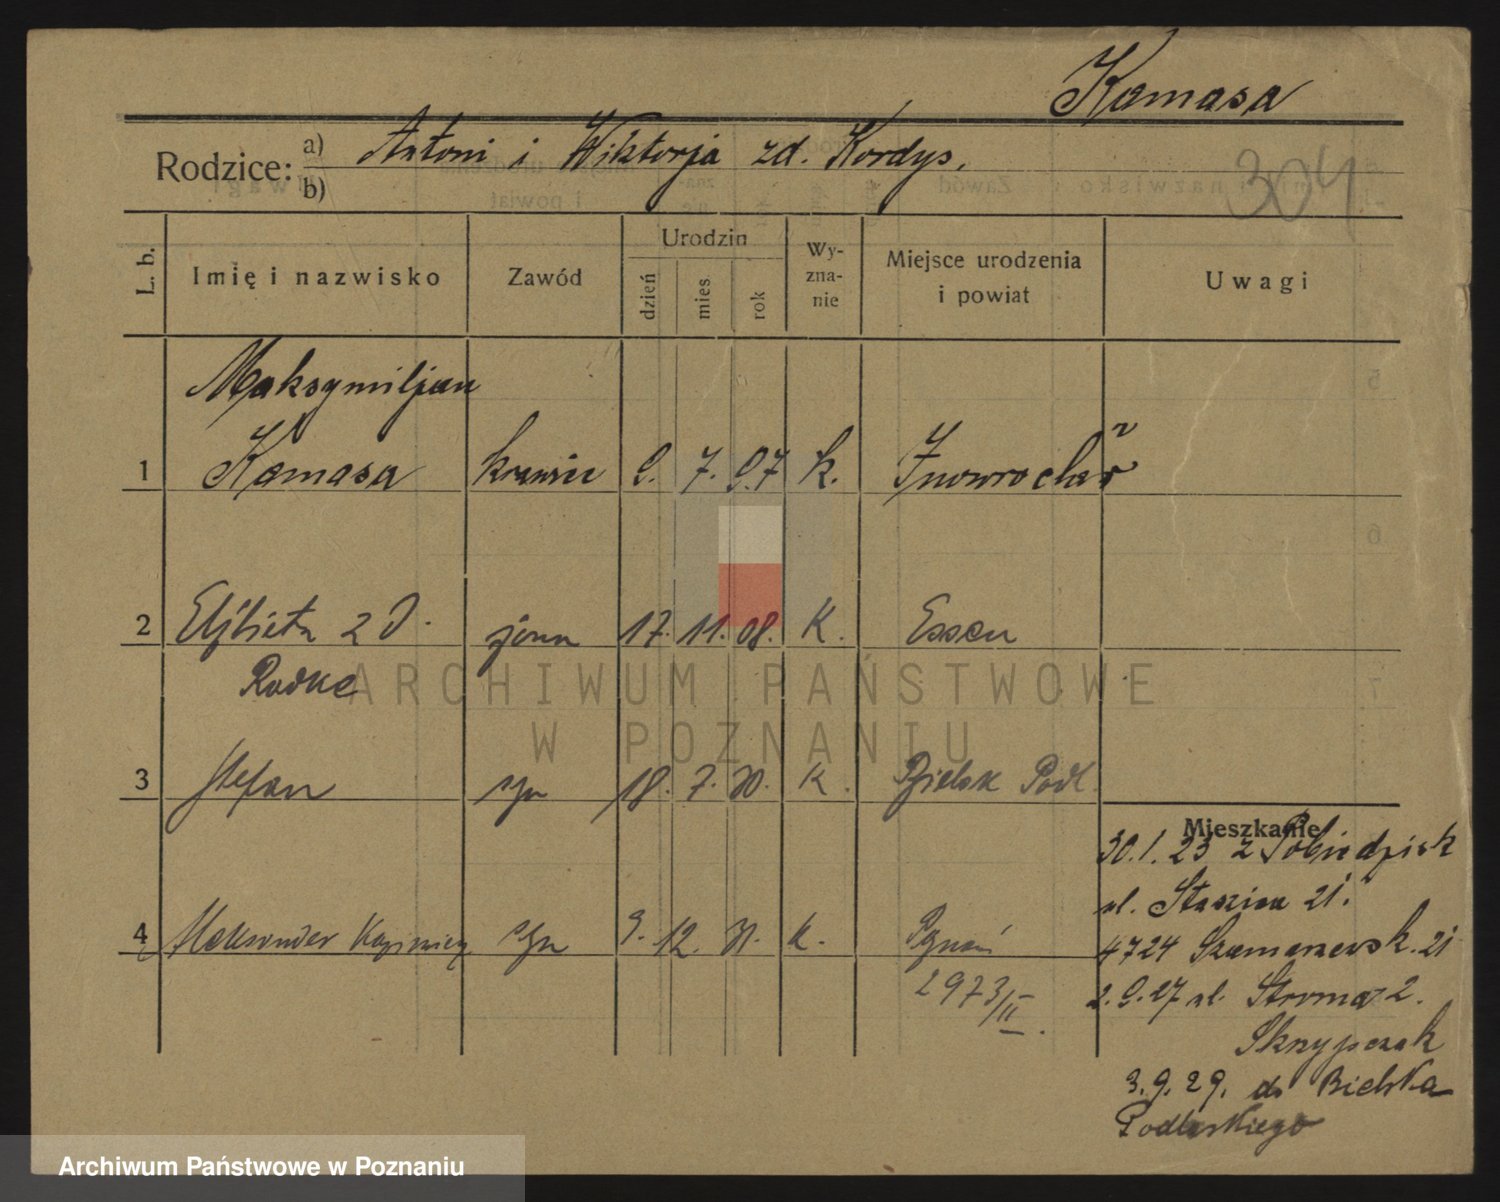 Kamasa
Rodzice: a) Antoni i Wiktorja zd. Kordys.
b)
304
L. b.
Imię i nazwisko
Zawód
Urodzin
dzień
mies.
rok
Wy-
zna-
nie
Miejsce urodzenia
i powiat
Uwagi
Maksymiljan
1 Kamasa krawiec 9. 7. 07 k. Inowrocław
2 Elżbieta z d. żona 17. 11. 08. K. Essen
Radke
3 Stefan syn 18. 7. 30. k. Bielsk Podl.
4 Aleksander Kazimierz syn 9. 12. 31. k. Poznań
2973/II.
Mieszkanie
30.1.23 z Pobiedzisk
ul. Staszica 21.
4724 Szamarzewsk. 21
2.9.27 ul. Stroma 2.
Skrzypczak
3.9.29. do Bielska
Podlaskiego
ARCHIWUM PAŃSTWOWE
W POZNANIU
Archiwum Państwowe w Poznaniu